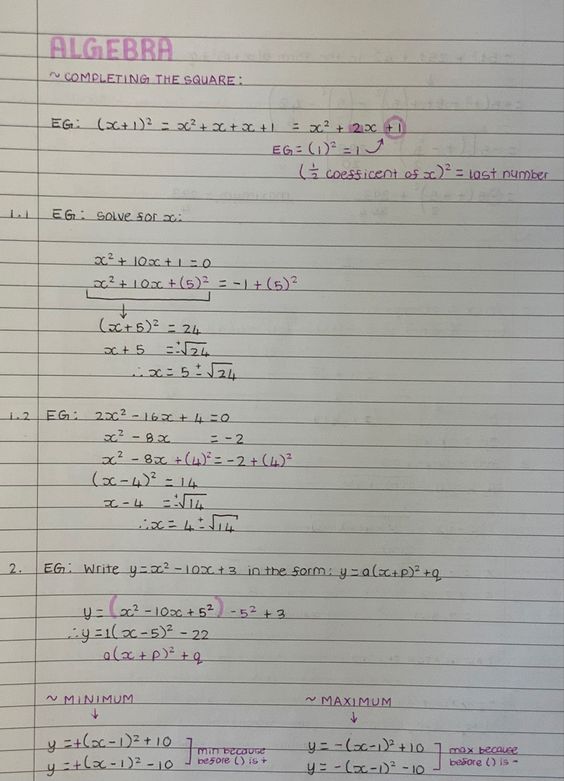 ALGEBRA
~ COMPLETING THE SQUARE:
EG: (x+1)² = x² + x + x + 1 = x² + 2x + 1
EG = (1)² = 1
(½ coefficent of x)² = last number
1.1 EG: solve for x:
x² + 10x + 1 = 0
x² + 10x + (5)² = -1 + (5)²
↓
(x+5)² = 24
x + 5 = ±√24
∴ x = 5 ± √24
1.2 EG: 2x² - 16x + 4 = 0
x² - 8x = -2
x² - 8x + (4)² = -2 + (4)²
(x - 4)² = 14
x - 4 = ±√14
∴ x = 4 ± √14
2. EG: Write y = x² - 10x + 3 in the form: y = a(x+p)² + q
y = (x² - 10x + 5²) - 5² + 3
∴ y = 1(x - 5)² - 22
a(x + p)² + q
~ MINIMUM
↓
y = +(x-1)² + 10
y = +(x-1)² - 10
min because
before () is +
~ MAXIMUM
↓
y = -(x-1)² + 10
y = -(x-1)² - 10
max because
before () is -